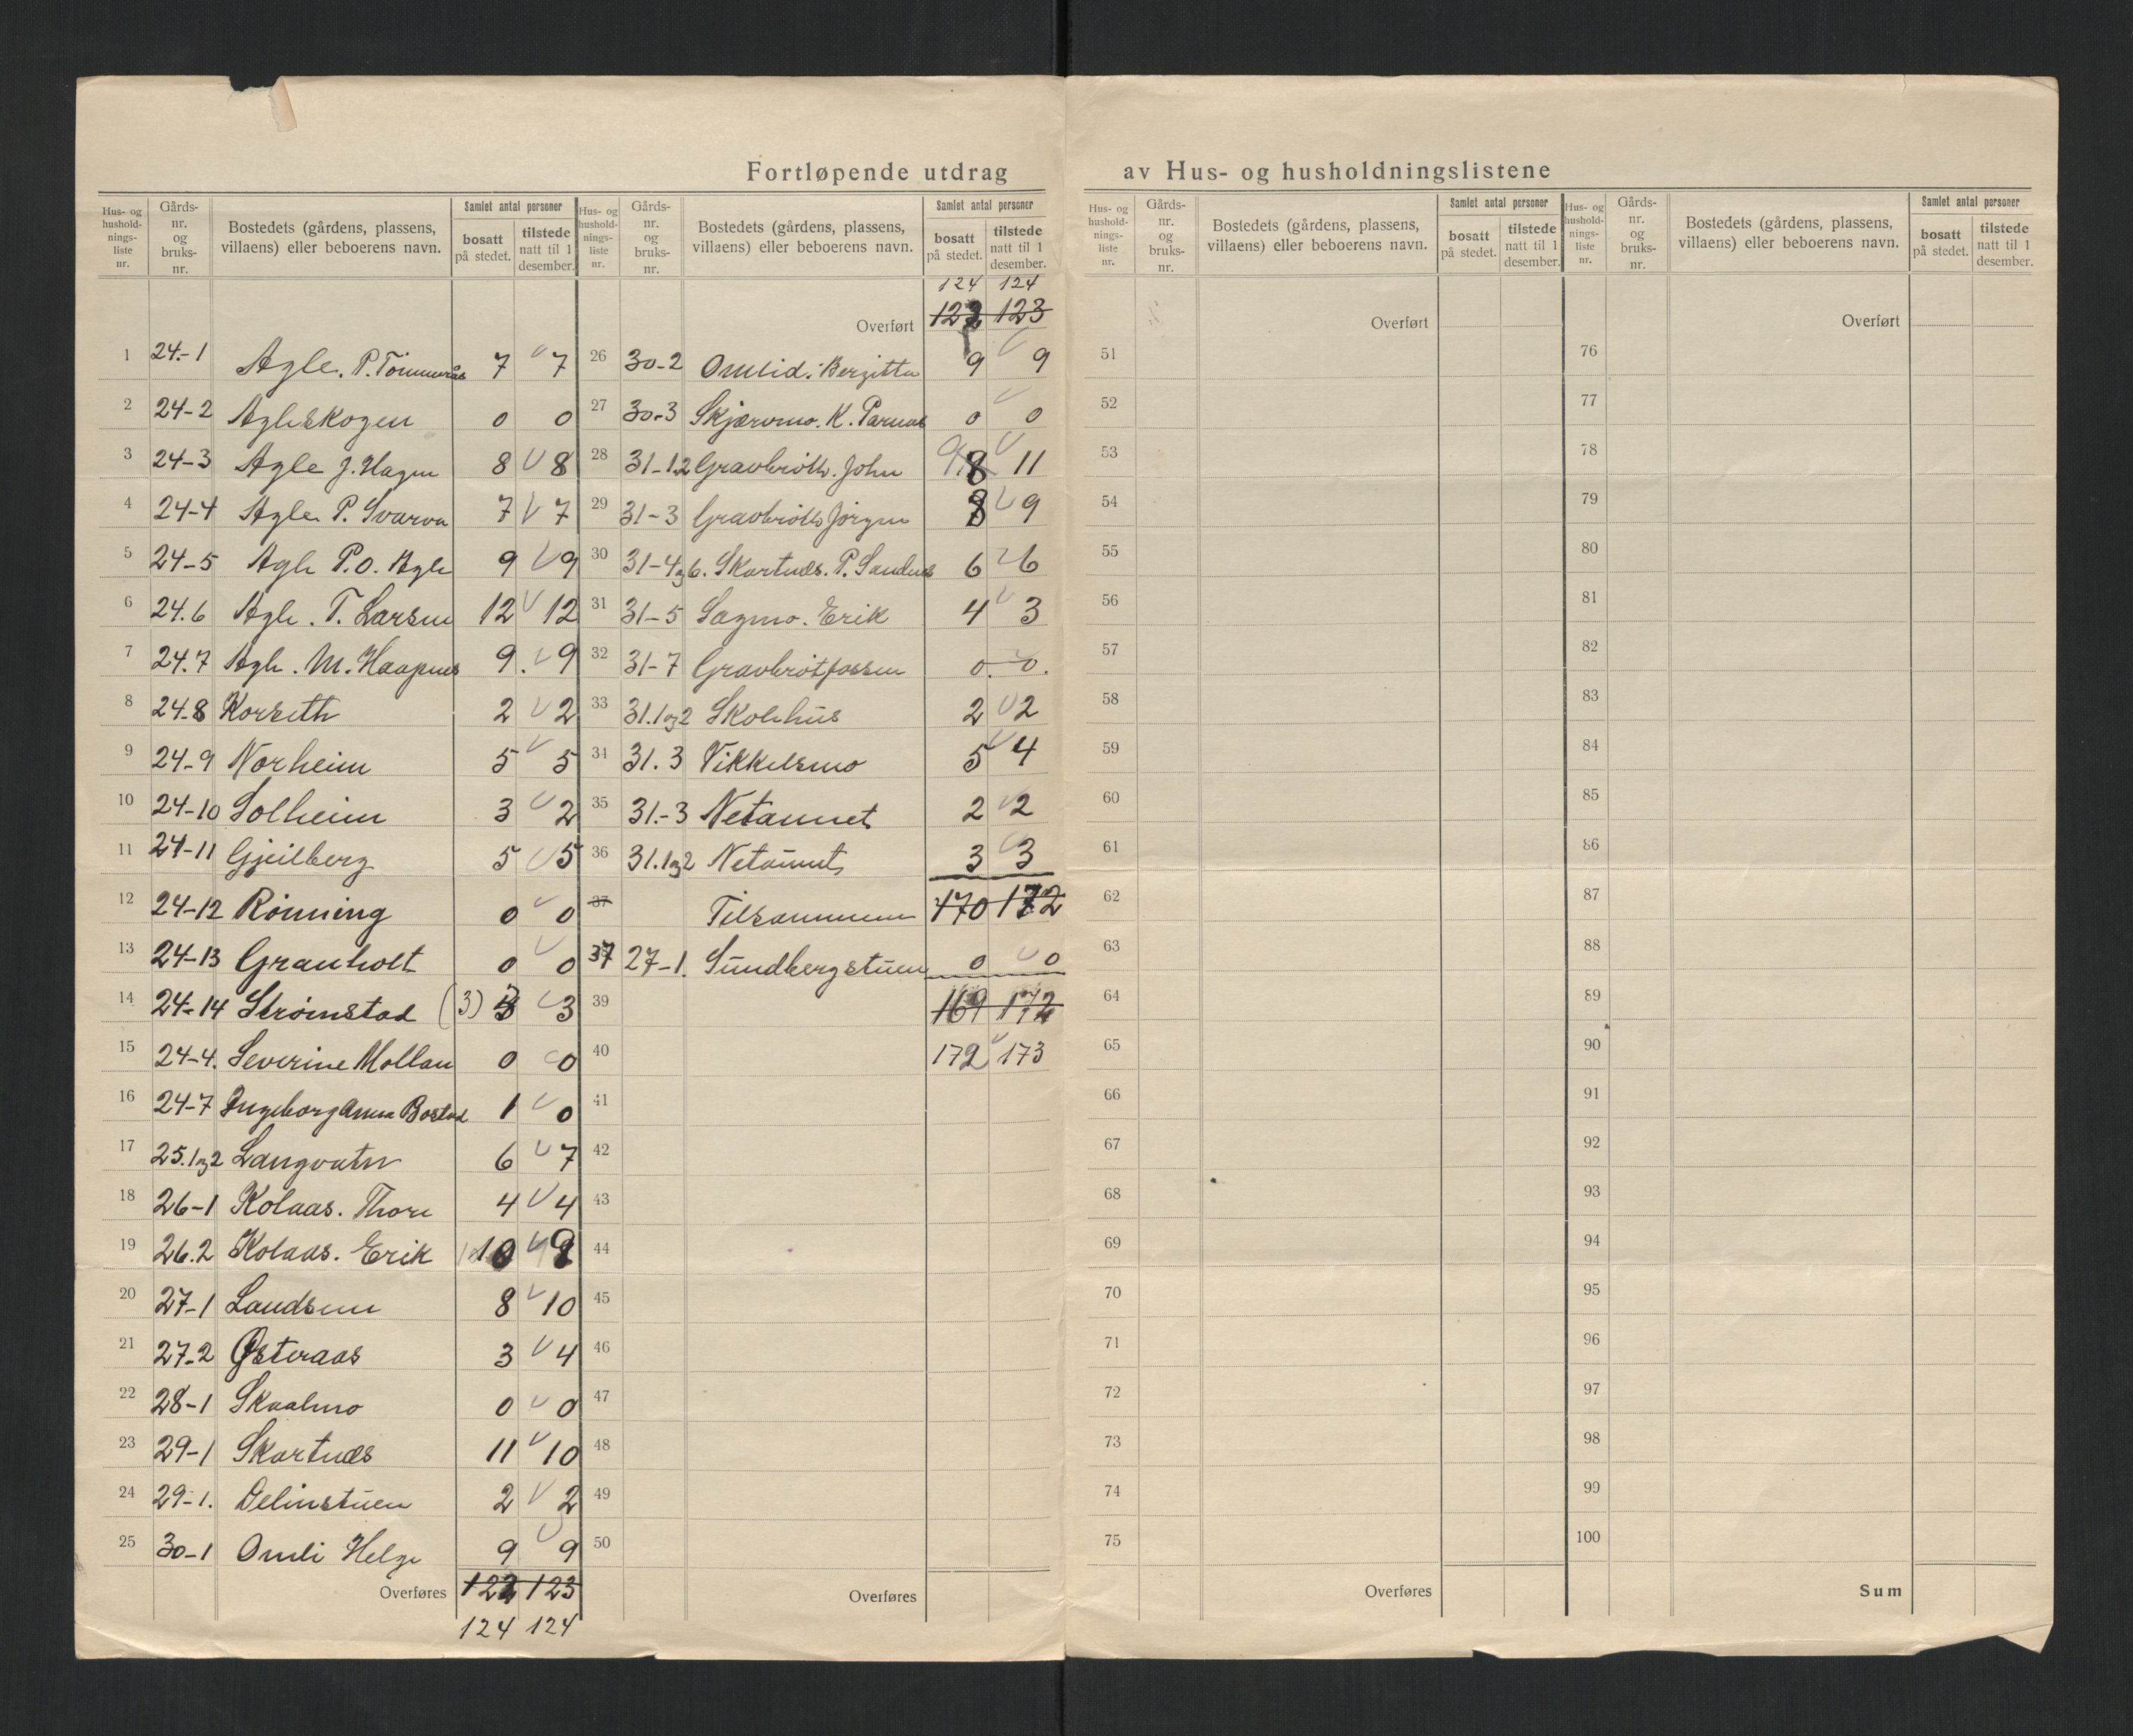 Fortløpende utdrag av Hus- og husholdningslistene
Hus- og hushold-nings-liste nr. Gårds-nr. og bruks-nr. Bostedets (gårdens, plassens, villaens) eller beboerens navn. Samlet antal personer bosatt på stedet. tilstede natt til 1 desember.
1 24-1 Agle. P. Tömmerås 7 7
2 24-2 Agleskogen 0 0
3 24-3 Agle J. Hagen 8 8
4 24-4 Agle P. Svarva 7 7
5 24-5 Agle P.O. Agle 9 9
6 24.6 Agle. T. Larsen 12 12
7 24.7 Agle. M. Haapnes 9. 9
8 24.8 Korseth 2 2
9 24-9 Norheim 5 5
10 24-10 Solheim 3 2
11 24-11 Gjeilberg 5 5
12 24-12 Rönning 0 0
13 24-13 Granholt 0 0
14 24-14 Strömstad (3) 3 3
15 24-4. Severine Mollan 0 0
16 24-7 Ingeborg Anna Bostad 1 0
17 25.1og2 Langvatn 6 7
18 26-1 Kolaas. Thore 4 4
19 26.2 Kolaas. Erik 10 9
20 27-1 Landsem 8 10
21 27-2 Østeraas 3 4
22 28-1 Skaalmo 0 0
23 29-1 Skartnæs 11 10
24 29-1. Delinstuen 2 2
25 30-1 Omli Helge 9 9
Overføres 122 123
124 124
Hus- og hushold-nings-liste nr. Gårds-nr. og bruks-nr. Bostedets (gårdens, plassens, villaens) eller beboerens navn. Samlet antal personer bosatt på stedet. tilstede natt til 1 desember.
124 124
Overført 122 123
26 30-2 Omlid. Bergitta 9 9
27 30-3 Skjærvmo. K. Parnas 0 0
28 31-1,2 Gravbröth. John 9 8 11
29 31-3 Gravbröth Jörgen 8 9
30 31-4og6. Skartnes. P. Sandnes 6 6
31 31-5 Sagmo. Erik 4 3
32 31-7 Gravbrötfossen 0. 0.
33 31.1og2 Skolehus 2 2
34 31.3 Vikkelsmo 5 4
35 31-3 Netaunet 2 2
36 31.1og2 Netaunet 3 3
37 Tilsammen 170 172
37 27-1. Sundbergstuen 0 0
39 169 172
40 172 173
41
42
43
44
45
46
47
48
49
50
Overføres
Hus- og hushold-nings-liste nr. Gårds-nr. og bruks-nr. Bostedets (gårdens, plassens, villaens) eller beboerens navn. Samlet antal personer bosatt på stedet. tilstede natt til 1 desember.
Overført
51
52
53
54
55
56
57
58
59
60
61
62
63
64
65
66
67
68
69
70
71
72
73
74
75
Overføres
Hus- og hushold-nings-liste nr. Gårds-nr. og bruks-nr. Bostedets (gårdens, plassens, villaens) eller beboerens navn. Samlet antal personer bosatt på stedet. tilstede natt til 1 desember.
Overført
76
77
78
79
80
81
82
83
84
85
86
87
88
89
90
91
92
93
94
95
96
97
98
99
100
Sum